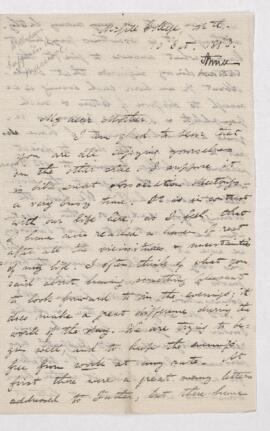 College
My dear Mother,
I am glad to hear that
you are all enjoying yourselves
on the other side. I suppose it
is
a very busy time. It is in contrast
with our life here, as I feel that
I have now reached a haven of rest
after all the vicissitudes & uncertainties
of my life. I often think of what you
said about having something pleasant
to look forward to in the evenings; it
does make a great difference during the
work of the day. We are trying to be-
gin well, and to keep the evenings
free from work at any rate. At
first there were a great many letters
addressed to Father, but these have